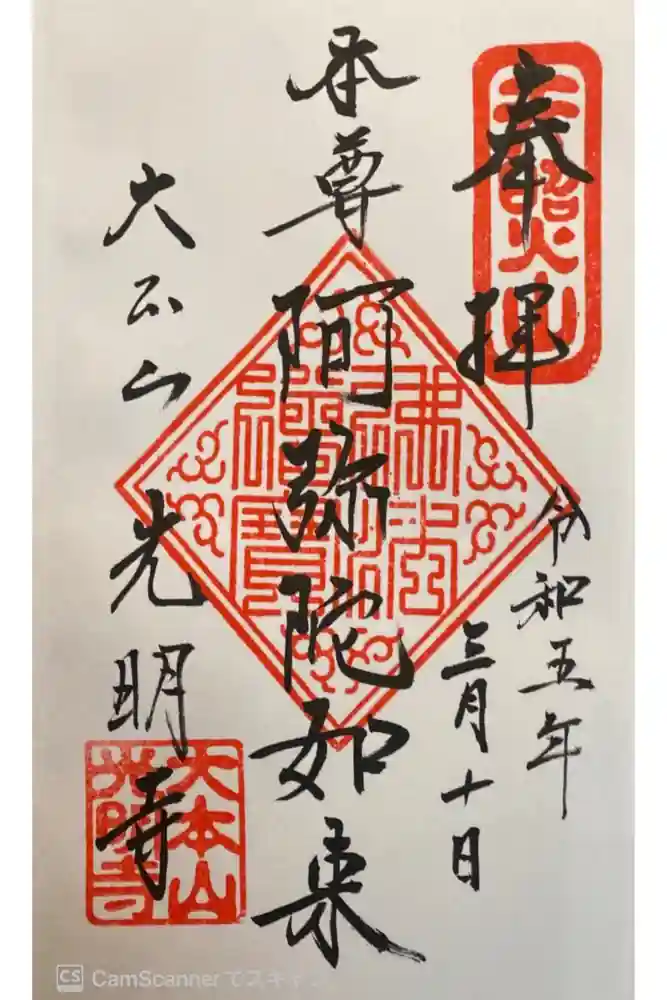 奉拝
令和五年
三月十日
本尊
阿弥陀如来
大本山
光明寺
大本山
光明寺
CS CamScannerでスキャン